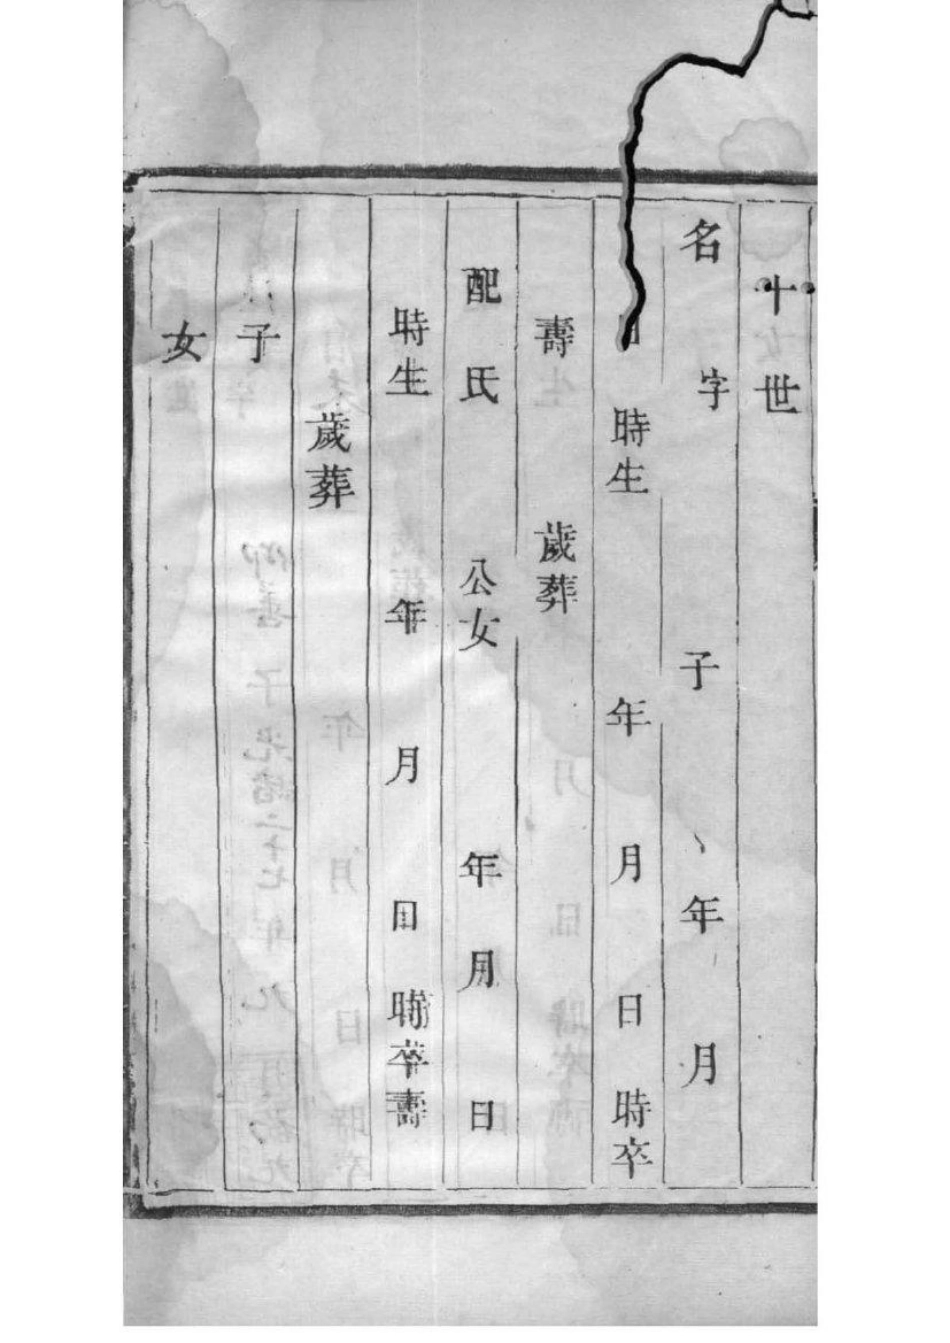 十世
名 字 子 年 月
日 時生 年 月 日 時卒
壽 歲葬
配 氏 公女 年 月 日
時生 年 月 日 時卒壽
歲葬
子
女